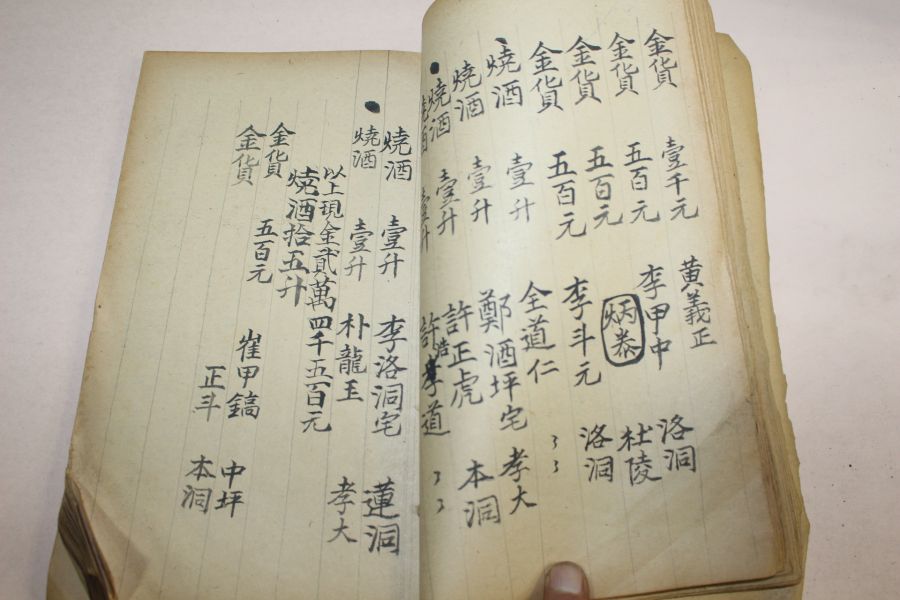 金貨 壹千元 黃義正 洛洞
金貨 五百元 李甲中 杜陵
炳泰
金貨 五百元 李斗元 洛洞
金貨 五百元 全道仁 〃
燒酒 壹升 鄭酒坪宅 孝大
燒酒 壹升 許正虎 本洞
燒酒 壹升 許孝道 〃
浩
燒酒 壹升
燒酒 壹升 李洛洞宅 蓮洞
燒酒 壹升 朴龍王 孝大
以上現金貳萬四千五百元
燒酒拾五升
金貨 五百元 崔甲鎬 中坪
金貨 正斗 本洞